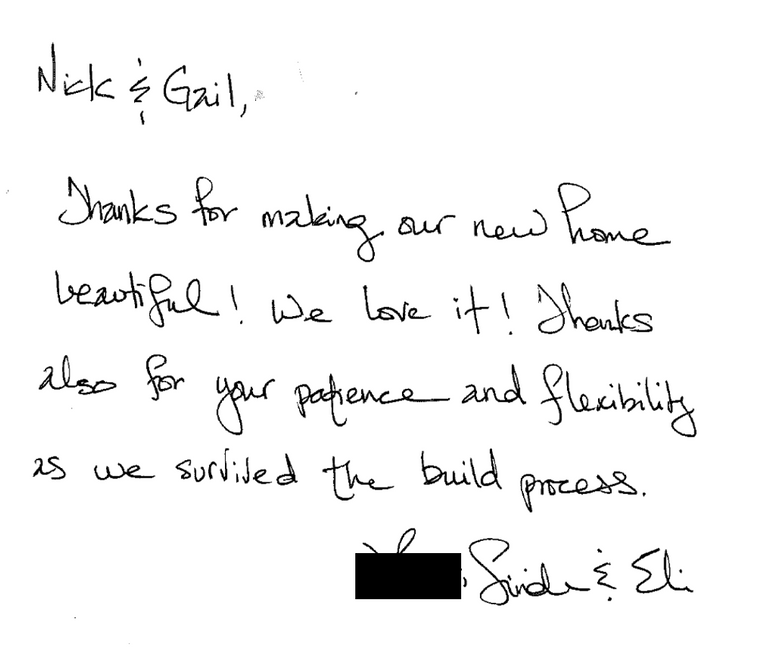 Nick & Gail,
Thanks for making our new home
beautiful! We love it! Thanks
also for your patience and flexibility
as we survived the build process.
& Eli